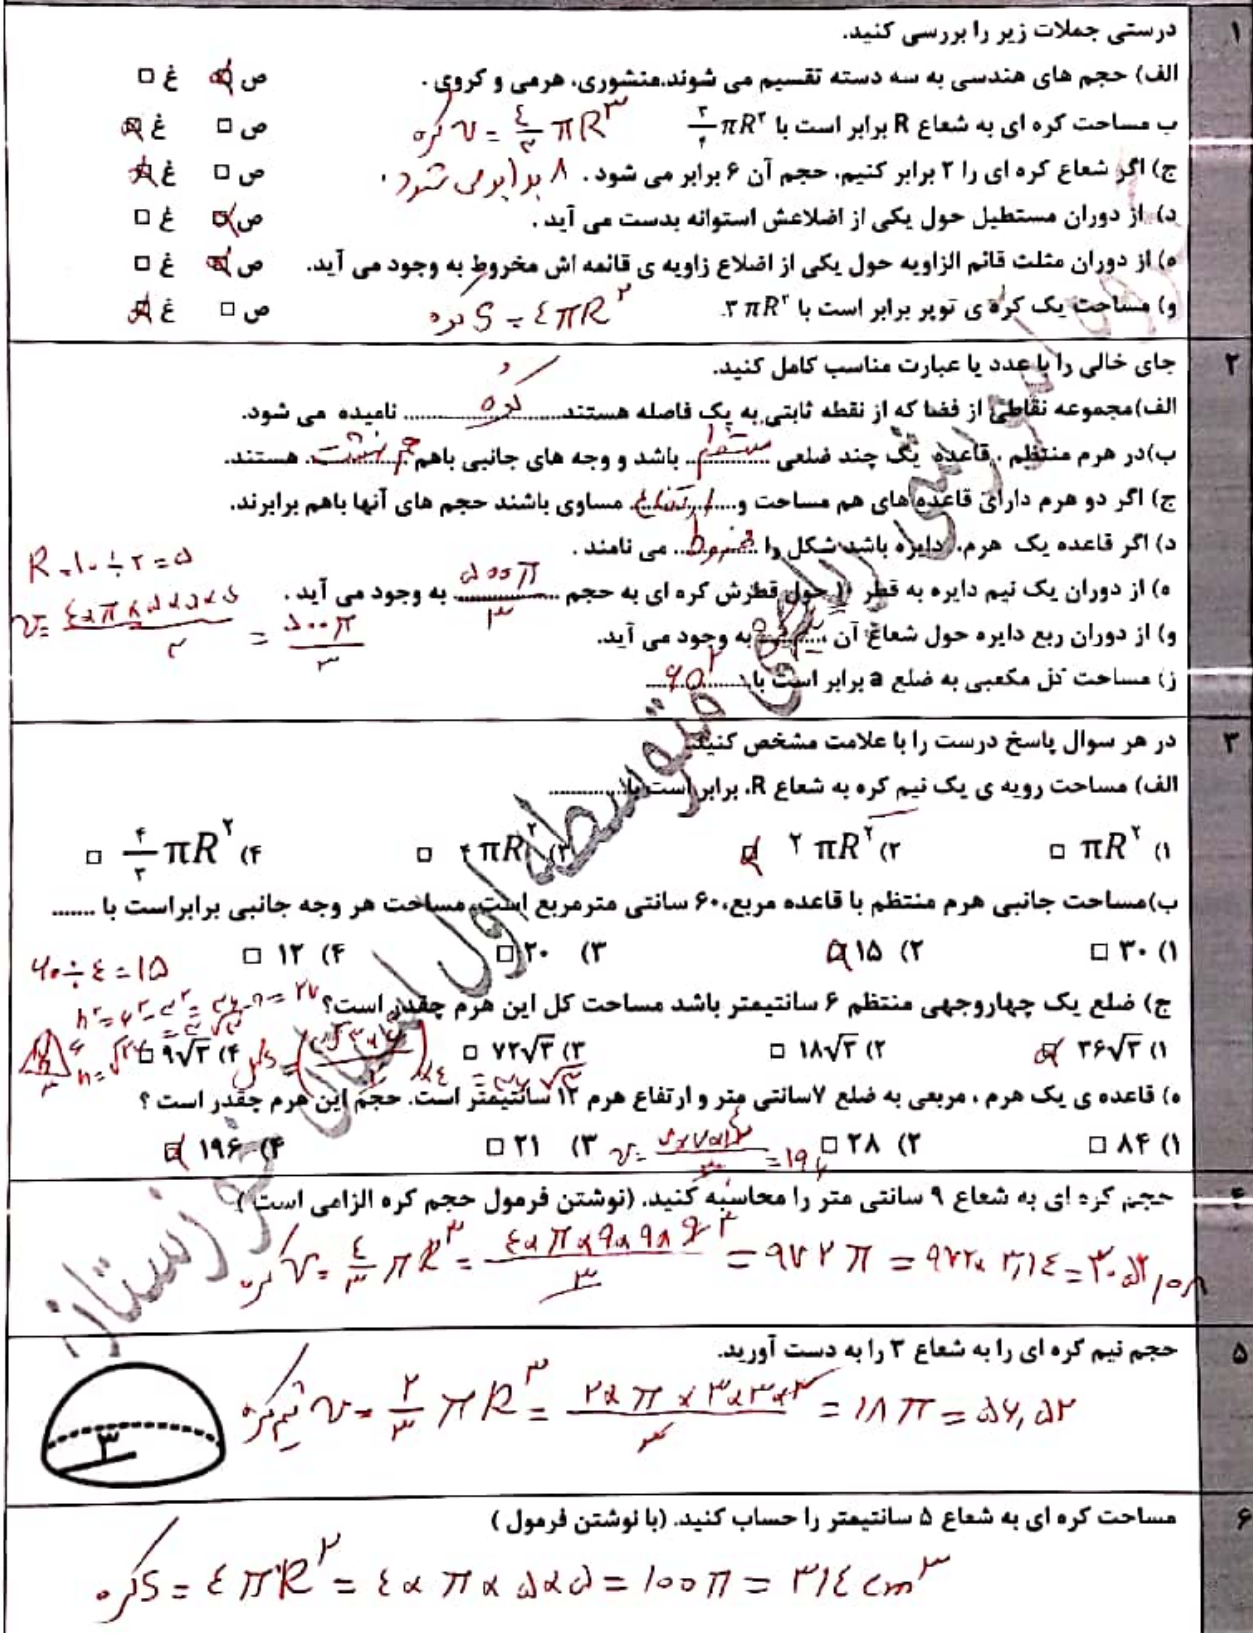 ۱ درستی جملات زیر را بررسی کنید.
الف) حجم های هندسی به سه دسته تقسیم می شوند.منشوری، هرمی و کروی . ص □ غ □
ب مساحت کره ای به شعاع R برابر است با ۳/۴ πR² کره V = ۴/۳ πR³ ص □ غ □
ج) اگر شعاع کره ای را ۲ برابر کنیم، حجم آن ۶ برابر می شود . ۸ برابر می شود . ص □ غ □
د) از دوران مستطیل حول یکی از اضلاعش استوانه بدست می آید . ص □ غ □
ه) از دوران مثلث قائم الزاویه حول یکی از اضلاع زاویه ی قائمه اش مخروط به وجود می آید. ص □ غ □
و) مساحت یک کره ی توپر برابر است با ۳πR² کره S = ۴πR² ص □ غ □
۲ جای خالی را با عدد یا عبارت مناسب کامل کنید.
الف)مجموعه نقاطی از فضا که از نقطه ثابتی به یک فاصله هستند....کره.... نامیده می شود.
ب)در هرم منتظم ، قاعده یک چند ضلعی ..منتظم.. باشد و وجه های جانبی باهم ..هم نهشت.. هستند.
ج) اگر دو هرم دارای قاعده های هم مساحت و..ارتفاع.. مساوی باشند حجم های آنها باهم برابرند.
د) اگر قاعده یک هرم، دایره باشد شکل را ..مخروط.. می نامند .
R = ۱۰ ÷ ۲ = ۵
ه) از دوران یک نیم دایره به قطر ۱۰ حول قطرش کره ای به حجم ..۵۰۰π/۳.. به وجود می آید .
V = ۴×π×۵×۵×۵/۳ = ۵۰۰π/۳
و) از دوران ربع دایره حول شعاع آن ..... به وجود می آید.
ز) مساحت کل مکعبی به ضلع a برابر است با ..۶a²..
۳ در هر سوال پاسخ درست را با علامت مشخص کنید.
الف) مساحت رویه ی یک نیم کره به شعاع R، برابر است با.............
۱) πR² □ ۲) ۲πR² □ ۳) ۴πR² □ ۴) ۴/۳ πR² □
ب)مساحت جانبی هرم منتظم با قاعده مربع،۶۰ سانتی مترمربع است. مساحت هر وجه جانبی برابراست با .......
۱) ۳۰ □ ۲) ۱۵ □ ۳) ۲۰ □ ۴) ۱۲ □
۶۰ ÷ ۴ = ۱۵
ج) ضلع یک چهاروجهی منتظم ۶ سانتیمتر باشد مساحت کل این هرم چقدر است؟
h² = ۶² - ۳² = ۳۶ - ۹ = ۲۷
h = √۲۷ = ۳√۳
۱) ۳۶√۳ □ ۲) ۱۸√۳ □ ۳) ۷۲√۳ □ ۴) ۹√۳ □
S کل = (۳√۳×۶/۲)×۴ = ۳۶√۳
ه) قاعده ی یک هرم ، مربعی به ضلع ۷سانتی متر و ارتفاع هرم ۱۲ سانتیمتر است. حجم این هرم چقدر است ؟
۱) ۸۴ □ ۲) ۲۸ □ ۳) ۲۱ □ ۴) ۱۹۶ □
V = ۷×۷×۱۲/۳ = ۱۹۶
۴ حجم کره ای به شعاع ۹ سانتی متر را محاسبه کنید. (نوشتن فرمول حجم کره الزامی است)
کره V = ۴/۳ πR³ = ۴×π×۹×۹×۹/۳ = ۹۷۲π = ۹۷۲×۳٫۱۴ = ۳۰۵۲٫۰۸
۵ حجم نیم کره ای را به شعاع ۳ را به دست آورید.
نیم کره V = ۲/۳ πR³ = ۲×π×۳×۳×۳/۳ = ۱۸π = ۵۶٫۵۲
۳
۶ مساحت کره ای به شعاع ۵ سانتیمتر را حساب کنید. (با نوشتن فرمول )
کره S = ۴πR² = ۴×π×۵×۵ = ۱۰۰π = ۳۱۴ cm³